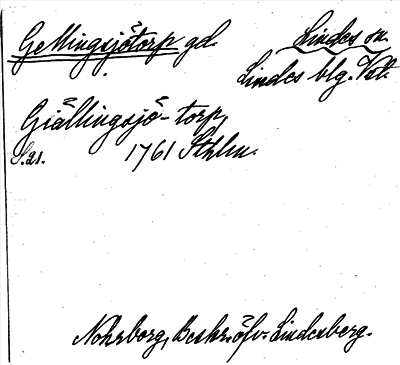 Gellingsjötorp gd. Lindes sn.
Lindes blg. Vsl.
Giällingsjö-torp,
S. 21. 1761 Sthlm.
Nohrborg, Beskr. öfv. Lindesberg.